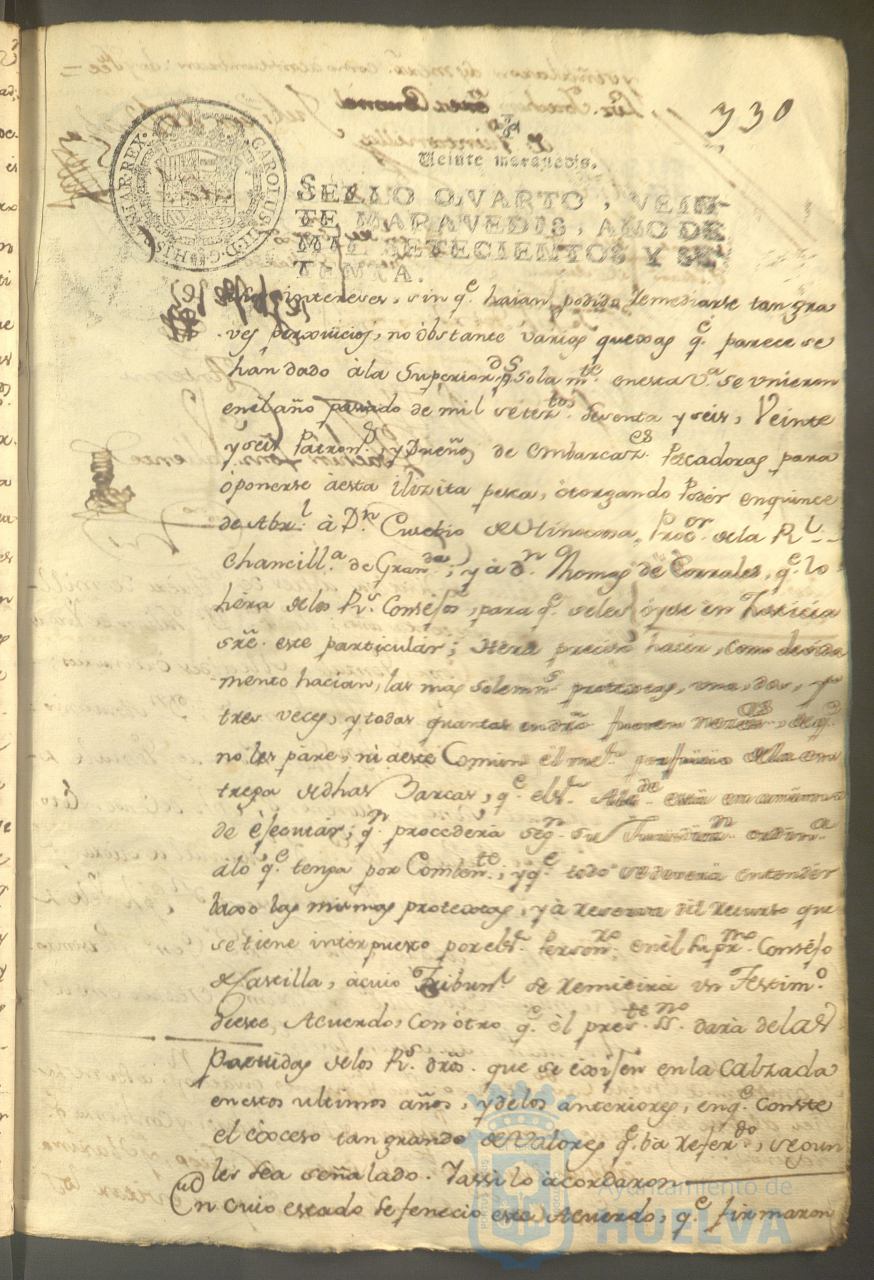 330
Veinte maravedis.
SELLO QVARTO, VEIN-
TE MARAVEDIS, AÑO DE
MIL SETECIENTOS Y SE-
TENTA.
CAROLUS III D. G. HISP. REX
intereses, sin q.e haian podido remediarse tan gra
ves perxuicios, no obstante varias quexas q.e parece se
han dado à la Superior.d y sola m.te en esta V.a se unieron
en el año pasado de mil setez.tos sesenta y seis, Veinte
y seis Patron.s, y Dueños de embarcaz.es Pescadoras para
oponerse à esta ilizita pesca, otorgando Poder en quince
de Abr.l à D.n Eusebio de Proc.or de la R.l
Chancill.a de Gran.da; y à D.n Thomas de Corrales, q.e lo
hera de los R.s Consejos, para q.e se les oyese en Justicia
sre. este particular; hera preciso hacer, como desde
mento hacian, las mas solemn.s protextas, una, dos, y
tres veces, y todas quantas en dro. fuesen nezes.as, de q.e
no les pare, ni a este Comun el me.r perjuicio de la en
trega de dhas Barcas, q.e el S.r Alc.de està en animo
de èjecutar; q.n procederà seg.n su Jurisdicz.n ordin.a
à lo q.e tenga por Comben.te, y q.e todo se deverà entender
baxo las mismas protextas, y à reserva del Recurso que
se tiene interpuesto por el S.r Person.ro en èl Supr.mo Consèjo
de Castilla, à cuio Tribun.l se remitirà un Testim.o
de este Acuerdo, con otro q.e èl pres.te ss.no darà de las
Partidas de los R.s dros. que se èxijen en la Calzada
en estos ultimos años, y de los anteriores, en q.e conste
el èxceso tan grande de Valores q.e ba refer.do, segun
les sea señalado. Y assi lo àcordaron
En cuio estado se fenecio este Acuerdo, q.e firmaron
Ayuntamiento de
HUELVA